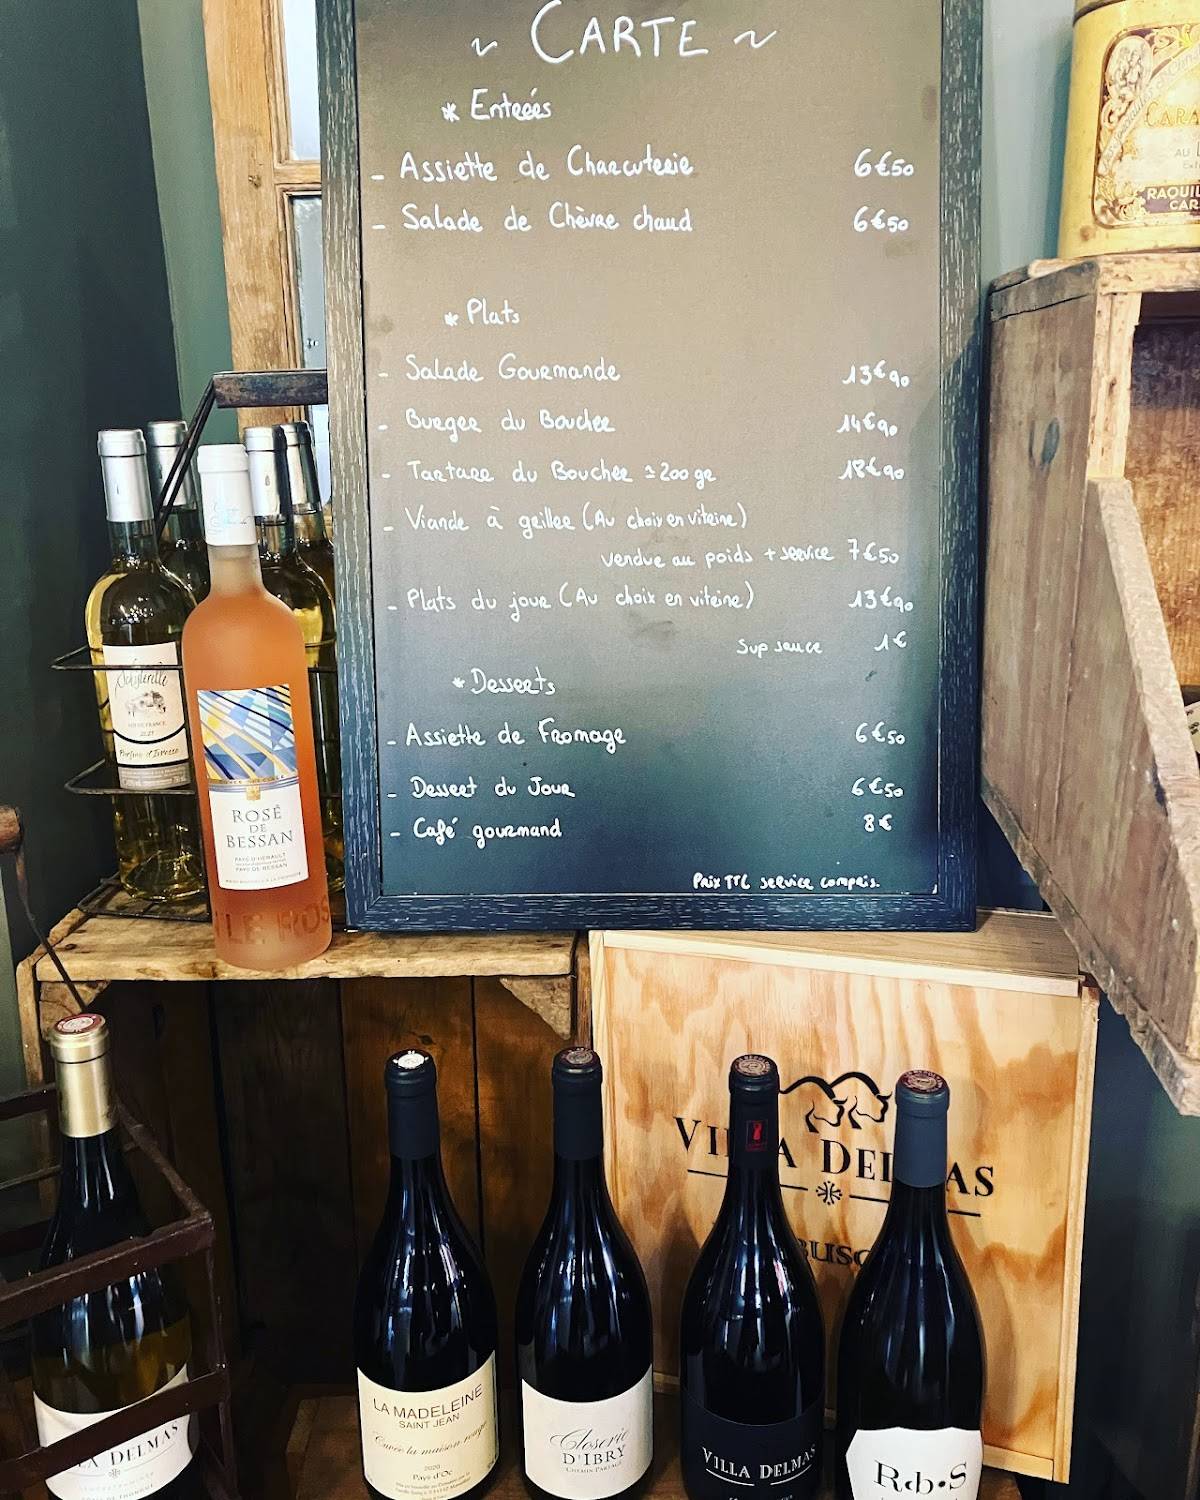 ~ CARTE ~
* Entrées
- Assiette de Charcuterie 6€50
- Salade de Chèvre chaud 6€50
* Plats
- Salade Gourmande 13€90
- Burger du Boucher 14€90
- Tartare du Boucher ≃200gr 18€90
- Viande à griller (Au choix en vitrine)
vendue au poids + service 7€50
- Plats du jour (Au choix en vitrine) 13€90
Sup sauce 1€
* Desserts
- Assiette de Fromage 6€50
- Dessert du Jour 6€50
- Café gourmand 8€
Prix TTC service compris.
CARA
AU
RAQUIL
CAR
VIN DE FRANCE
2021
ROSÉ
DE
BESSAN
PAYS D'HÉRAULT
PAYS DE BESSAN
LE ROS
VILLA DELMAS
LA MADELEINE
SAINT JEAN
Cuvée la maison rouge
2020
Pays d'Oc
Closerie
D'IBRY
CHEMIN PARTAGÉ
VILLA DELMAS
R·b·S
DELMAS